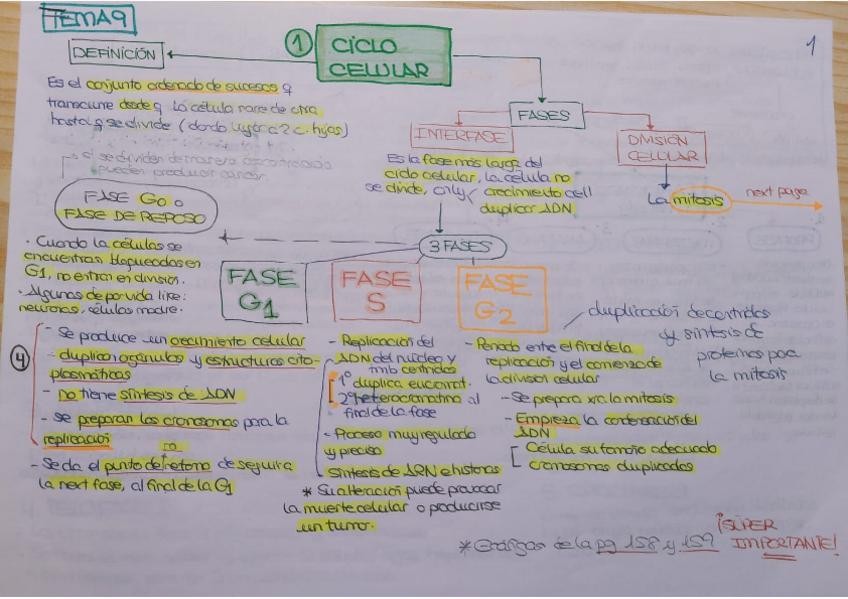 TEMA 9
1 CICLO
CELULAR
1
DEFINICIÓN
Es el conjunto ordenado de sucesos q
transcurre desde q la célula nace de otra
hasta q se divide (dando lugar a 2 c. hijas)
si se dividen de manera descontrolada
pueden producir cáncer.
FASES
INTERFASE
Es la fase más larga del
ciclo celular, la célula no
se divide, only crecimiento cell
duplicar ADN
DIVISIÓN
CELULAR
La mitosis
next page
FASE G0 o
FASE DE REPOSO
· Cuando la células se
encuentran bloqueadas en
G1, no entran en división.
· Algunas de por vida like:
neuronas, células madre.
3 FASES
FASE
G1
FASE
S
FASE
G2
4
- Se produce un crecimiento celular
- duplican orgánulos y estructuras cito-
plasmáticas
- no tiene síntesis de ADN
- Se preparan los cromosomas para la
replicación
no
- Se da el punto de retorno de seguir a
la next fase, al final de la G1
- Replicación del
ADN del núcleo y
tmb centriolos
1º duplica eucromat.
2º heterocromatina al
final de la fase
- Proceso muy regulado
y preciso
- Síntesis de ARN e histonas
* Su alteración puede provocar
la muerte celular o producirse
un tumor.
duplicación de centriolos
y síntesis de
proteínas para
la mitosis
- Periodo entre el final de la
replicación y el comienzo de
la división celular
- Se prepara xra la mitosis
- Empieza la condensación del
ADN
Célula su tamaño adecuado
cromosomas duplicados
* Gráficas de la pg 158 y 159
¡SÚPER
IMPORTANTE!